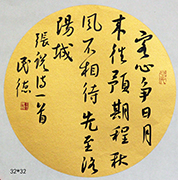 客心争日月
来往预期程秋
风不相待先至洛
陽城
張説诗一首
32*32